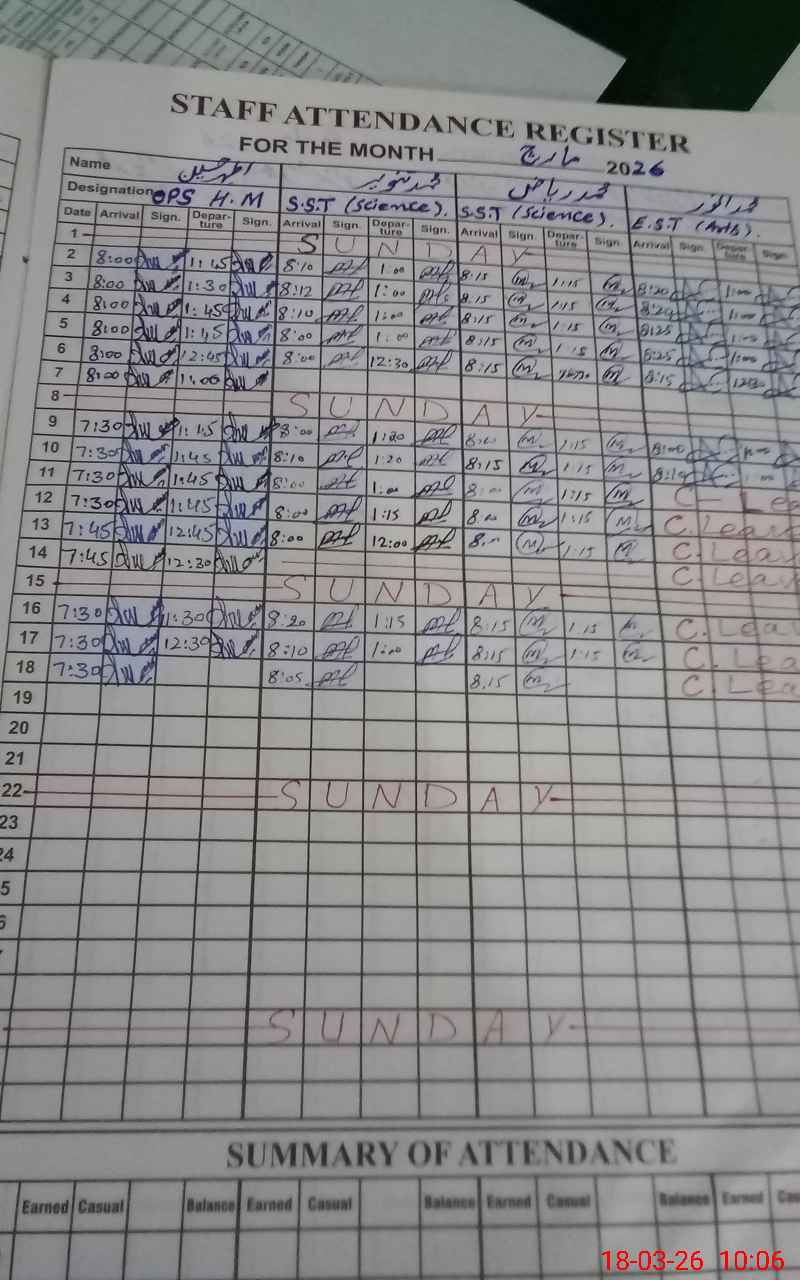 STAFF ATTENDANCE REGISTER
FOR THE MONTH مارچ 2026
Name اظہر حسین محمد تنویر محمد ریاض محمد انور
Designation OPS H.M S.S.T (Science). S.S.T (Science). E.S.T (Arts).
Date Arrival Sign. Departure Sign. Arrival Sign. Departure Sign. Arrival Sign. Departure Sign. Arrival Sign. Departure Sign.
1 SUNDAY
2 8:00 1:45 8:10 1:00 8:15 1:15 8:20 1:00
3 8:00 1:30 8:12 1:00 8:15 1:15 8:20 1:00
4 8:00 1:45 8:10 1:00 8:15 1:15 8:25 1:00
5 8:00 1:45 8:00 1:00 8:15 1:15 8:25 1:00
6 8:00 12:45 8:00 12:30 8:15 8:15 12:30
7 8:00 1:00
8 SUNDAY
9 7:30 1:15 8:00 1:20 8:00 1:15 8:00
10 7:30 1:45 8:10 1:20 8:15 1:15 8:10
11 7:30 1:45 8:00 1:00 8:00 1:15 C-Lea
12 7:30 1:45 8:00 1:15 8:00 1:15 C.Leave
13 7:45 12:45 8:00 12:00 8:00 1:15 C.Leav
14 7:45 12:30 C.Leav
15 SUNDAY
16 7:30 1:30 8:20 1:15 8:15 1:15 C.Lea
17 7:30 12:30 8:10 1:00 8:15 1:15 C.Lea
18 7:30 8:05 8.15 C.Lea
19
20
21
22 SUNDAY
23
24
5
6
SUNDAY
SUMMARY OF ATTENDANCE
Earned Casual Balance Earned Casual Balance Earned Casual Balance Earned Cas
18-03-26 10:06